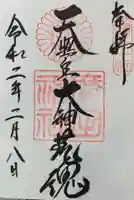 奉拝
天照皇大神荒魂
令和二年二月八日